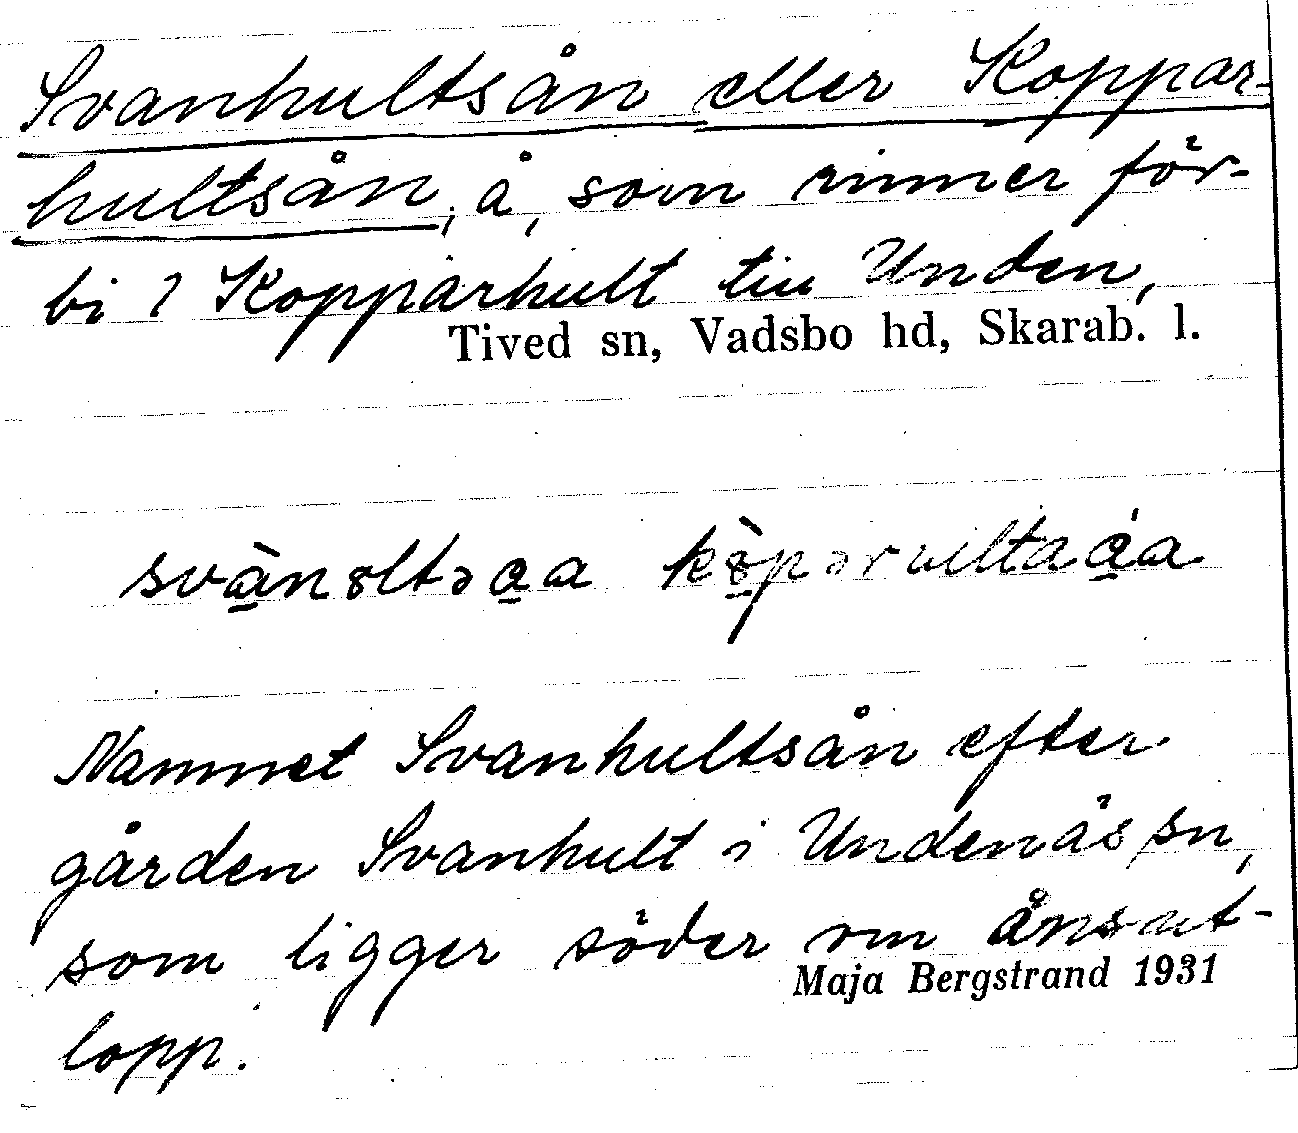 Svanhultsån eller Koppar-
hultsån, å, som rinner för-
bi 1 Kopparhult till Unden,
Tived sn, Vadsbo hd, Skarab. l.
Namnet Svanhultsån efter
gården Svanhult i Undenäs sn,
som ligger söder om åns ut-
Maja Bergstrand 1931
lopp.